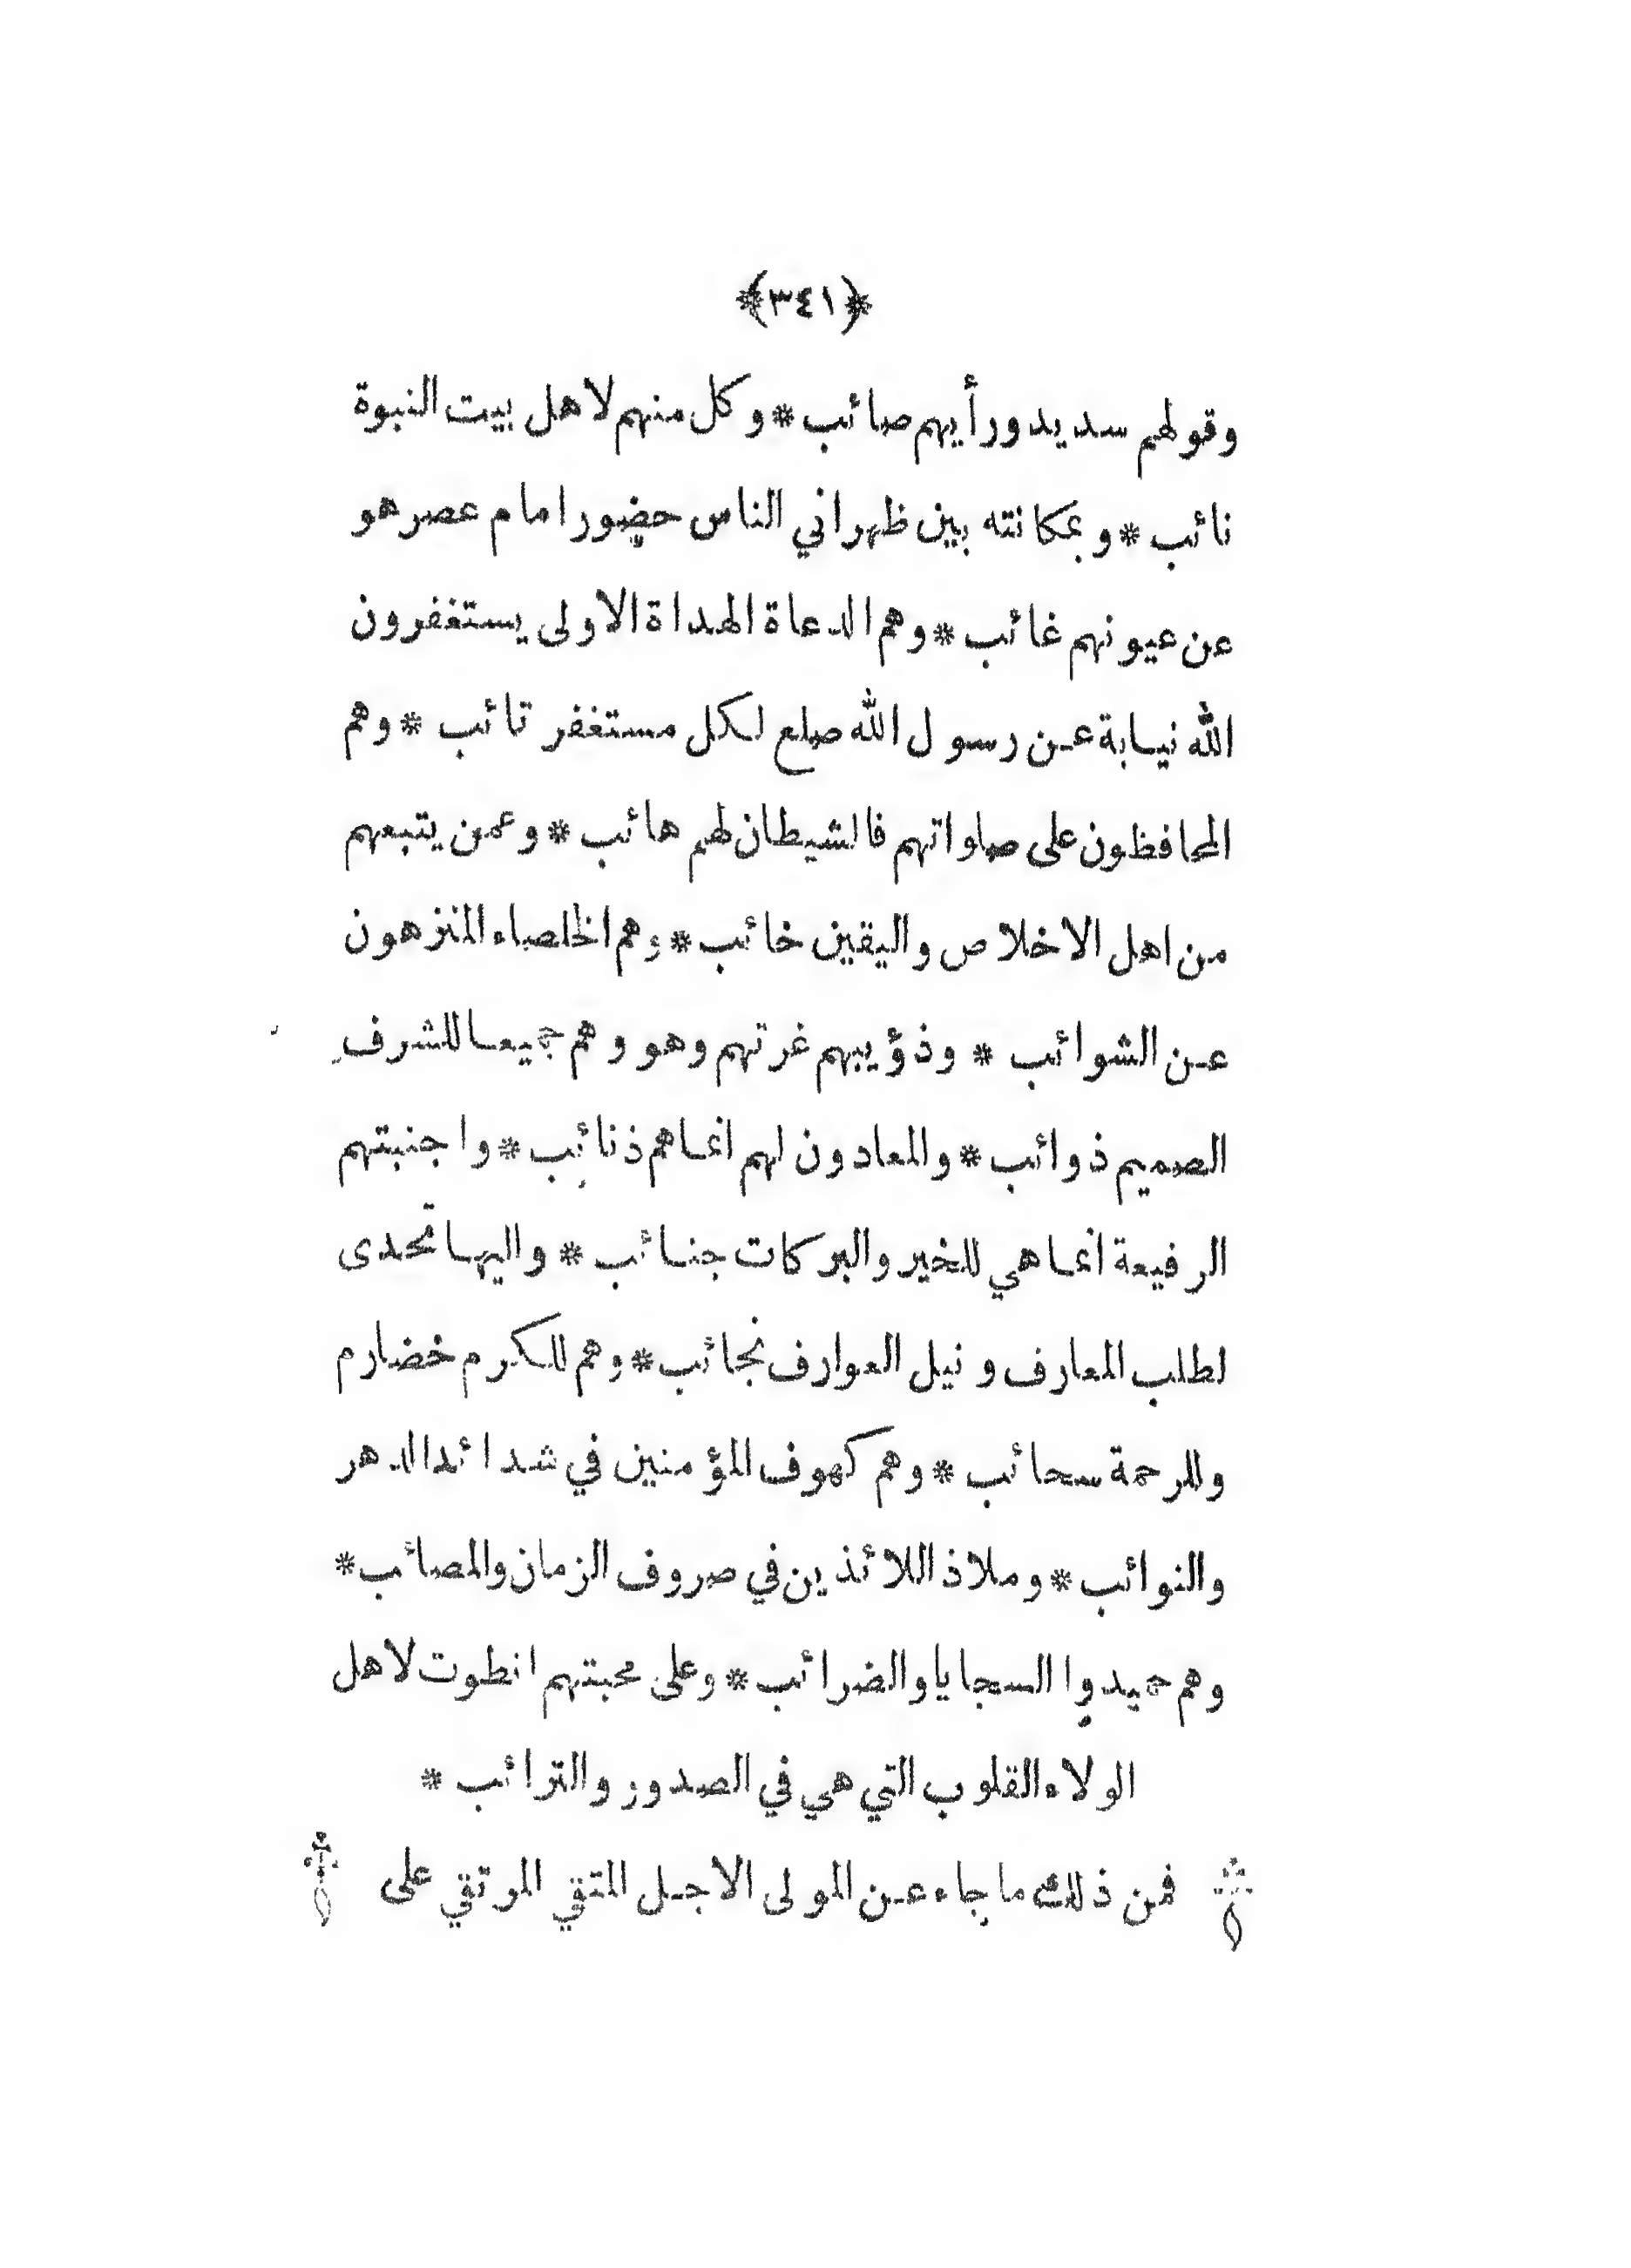 ﴿٣٤١﴾
وقولهم سديد ورأيهم صائب * وكل منهم لاهل بيت النبوة
نائب * وبمكانته بين ظهراني الناس حضور امام عصر هو
عن عيونهم غائب * وهم الدعاة الهداة الاولى يستغفرون
الله نيابة عن رسول الله صلع لكل مستغفر تائب * وهم
المحافظون على صلواتهم فالشيطان لهم هائب * وعمن يتبعهم
من اهل الاخلاص واليقين خائب * وهم الخلصاء المنزهون
عن الشوائب * وذؤيبهم غرتهم وهو وهم جميعا للشرف
الصميم ذوائب * والمعادون لهم انما هم ذنائب * واجنبتهم
الرفيعة انما هي للخير والبركات جنائب * واليها تحدى
لطلب المعارف ونيل العوارف نجائب * وهم للكرم خضارم
وللرحمة سحائب * وهم كهوف المؤمنين في شدائد الدهر
والنوائب * وملاذ اللائذين في صروف الزمان والمصائب *
وهم حميدوا السجايا والضرائب * وعلى محبتهم انطوت لاهل
الولاء القلوب التي هي في الصدور والترائب *
فمن ذلك ما جاء عن المولى الاجل المتقي المرتقي على